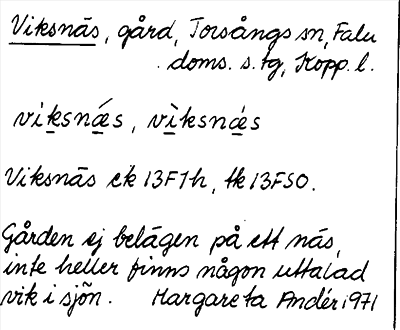 Viksnäs, gård, Torsångs sn, Falu
doms. s. tg, Kopp. l.
viksnǽs, vìksnǽs
Viksnäs ek 13F1h, tk 13FSO.
Gården ej belägen på ett näs,
inte heller finns någon uttalad
vik i sjön. Margareta Andér 1971